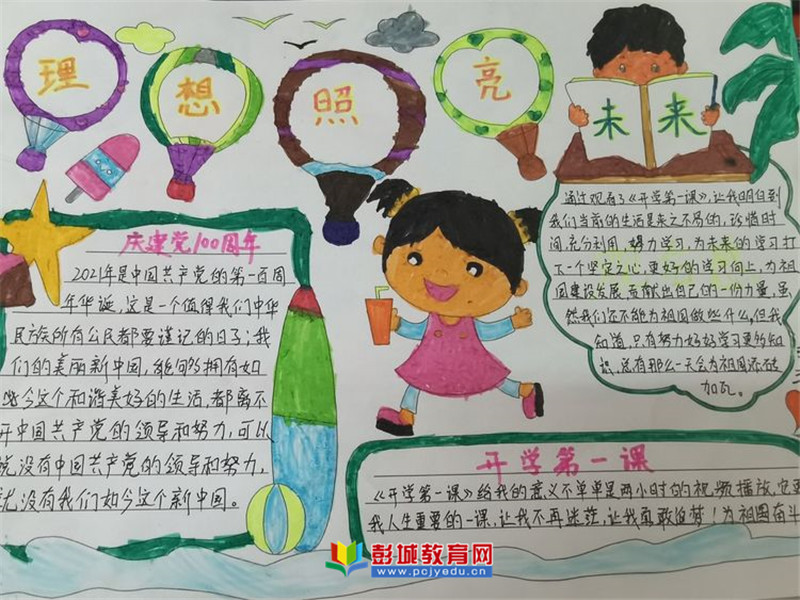 理想照亮未来
庆建党100周年
2021年是中国共产党的第一百周
年华诞,这是一个值得我们中华
民族所有公民都要谨记的日子;我
们的美丽新中国,能够拥有如
此今这个和谐美好的生活,都离不
开中国共产党的领导和努力,可以
说没有中国共产党的领导和努力,
就没有我们如今这个新中国。
通过观看了《开学第一课》,让我明白到
我们当前的生活是来之不易的,珍惜时
间,充分利用,努力学习,为未来的学习打
下一个坚定之心,更好的学习向上,为祖
国建设发展,贡献出自己的一份力量,虽
然我们还不能为祖国做些什么,但我
知道,只有努力好好学习更多知
识,总有那么一天会为祖国添砖
加瓦。
开学第一课
《开学第一课》给我的意义不单单是两小时的视频播放,更
我人生重要的一课,让我不再迷茫,让我勇敢追梦!为祖国奋斗
彭城教育网
www.pcjyedu.cn